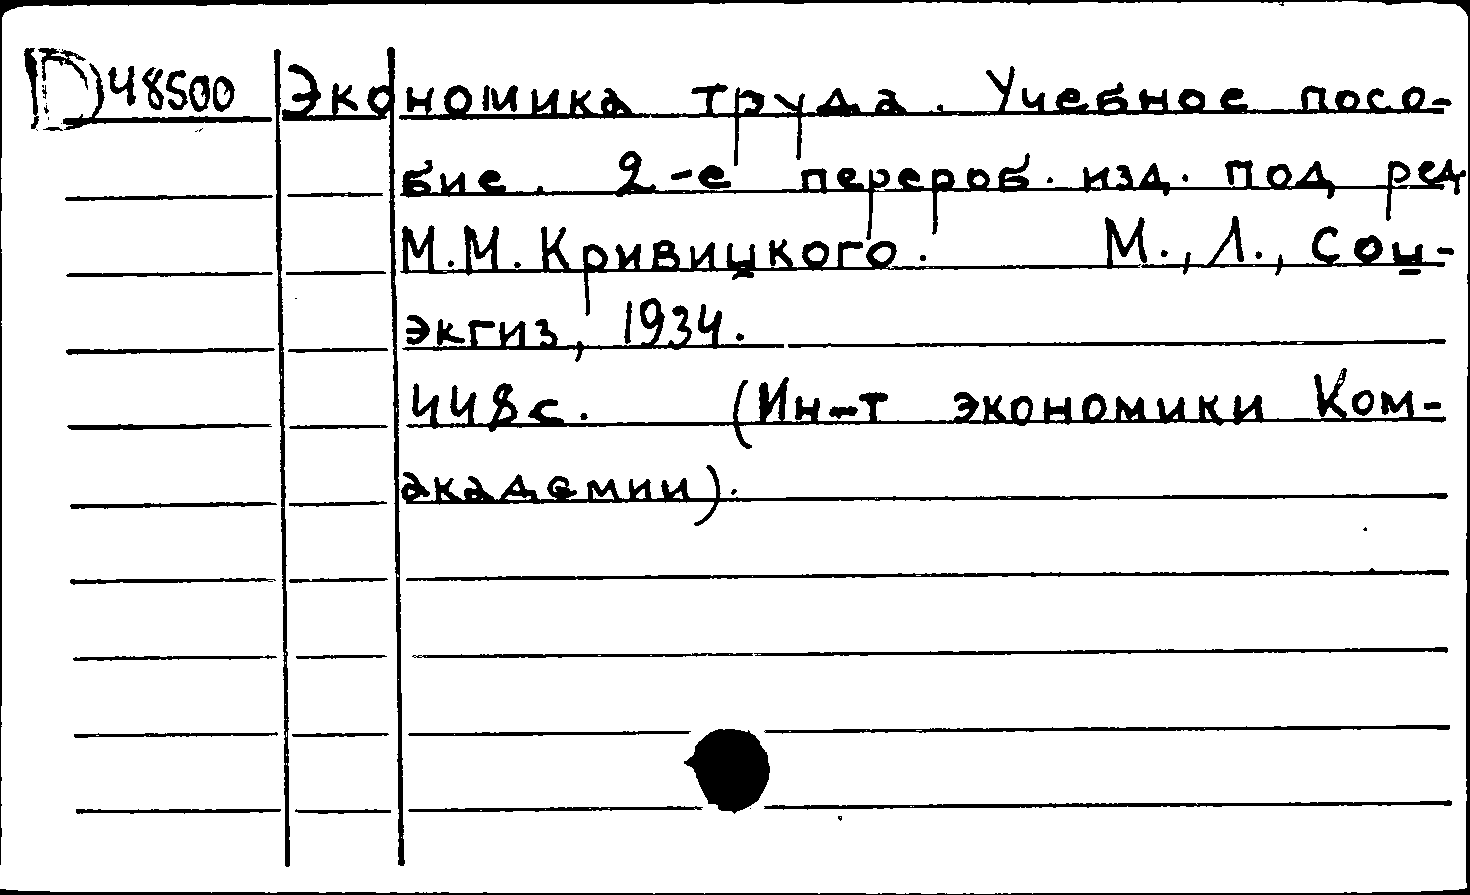 D 48500 Экономика труда. Учебное посо-
бие. 2-е перероб. изд. под ред
М.М. Кривицкого. М., Л., Соц-
экгиз, 1934.
448с. (Ин-т экономики Ком-
академии).